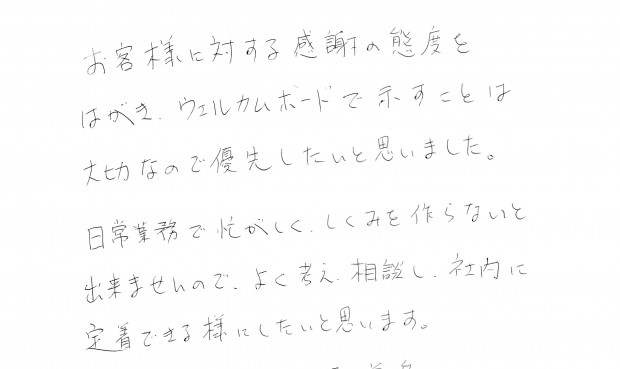 お客様に対する感謝の態度を
はがき、ウェルカムボードで示すことは
大切なので優先したいと思いました。
日常業務で忙がしく、しくみを作らないと
出来ませんので、よく考え、相談し、社内に
定着できる様にしたいと思います。